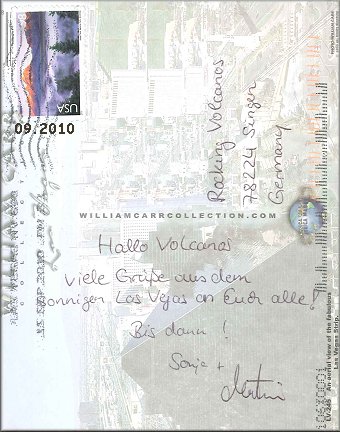 USA
09.2010
Raking Volcanos
78224 Singen
Germany
WILLIAMCARRCOLLECTION.COM
Hallo Volcanos
viele Grüße aus dem
sonnigen Las Vegas an Euch alle!
Bis dann!
Sonja +
An aerial view of the fabulous
Las Vegas Strip.